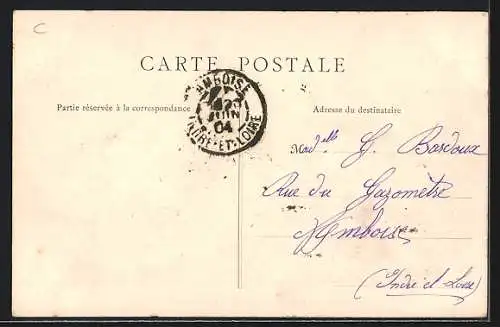 C
CARTE POSTALE
AMBOISE
JUIN
04
INDRE-ET-LOIRE
Partie réservée à la correspondance
Adresse du destinataire
Mad elle G. Bardoux
Rue du Gazomètre
Amboise
(Indre et Loire)